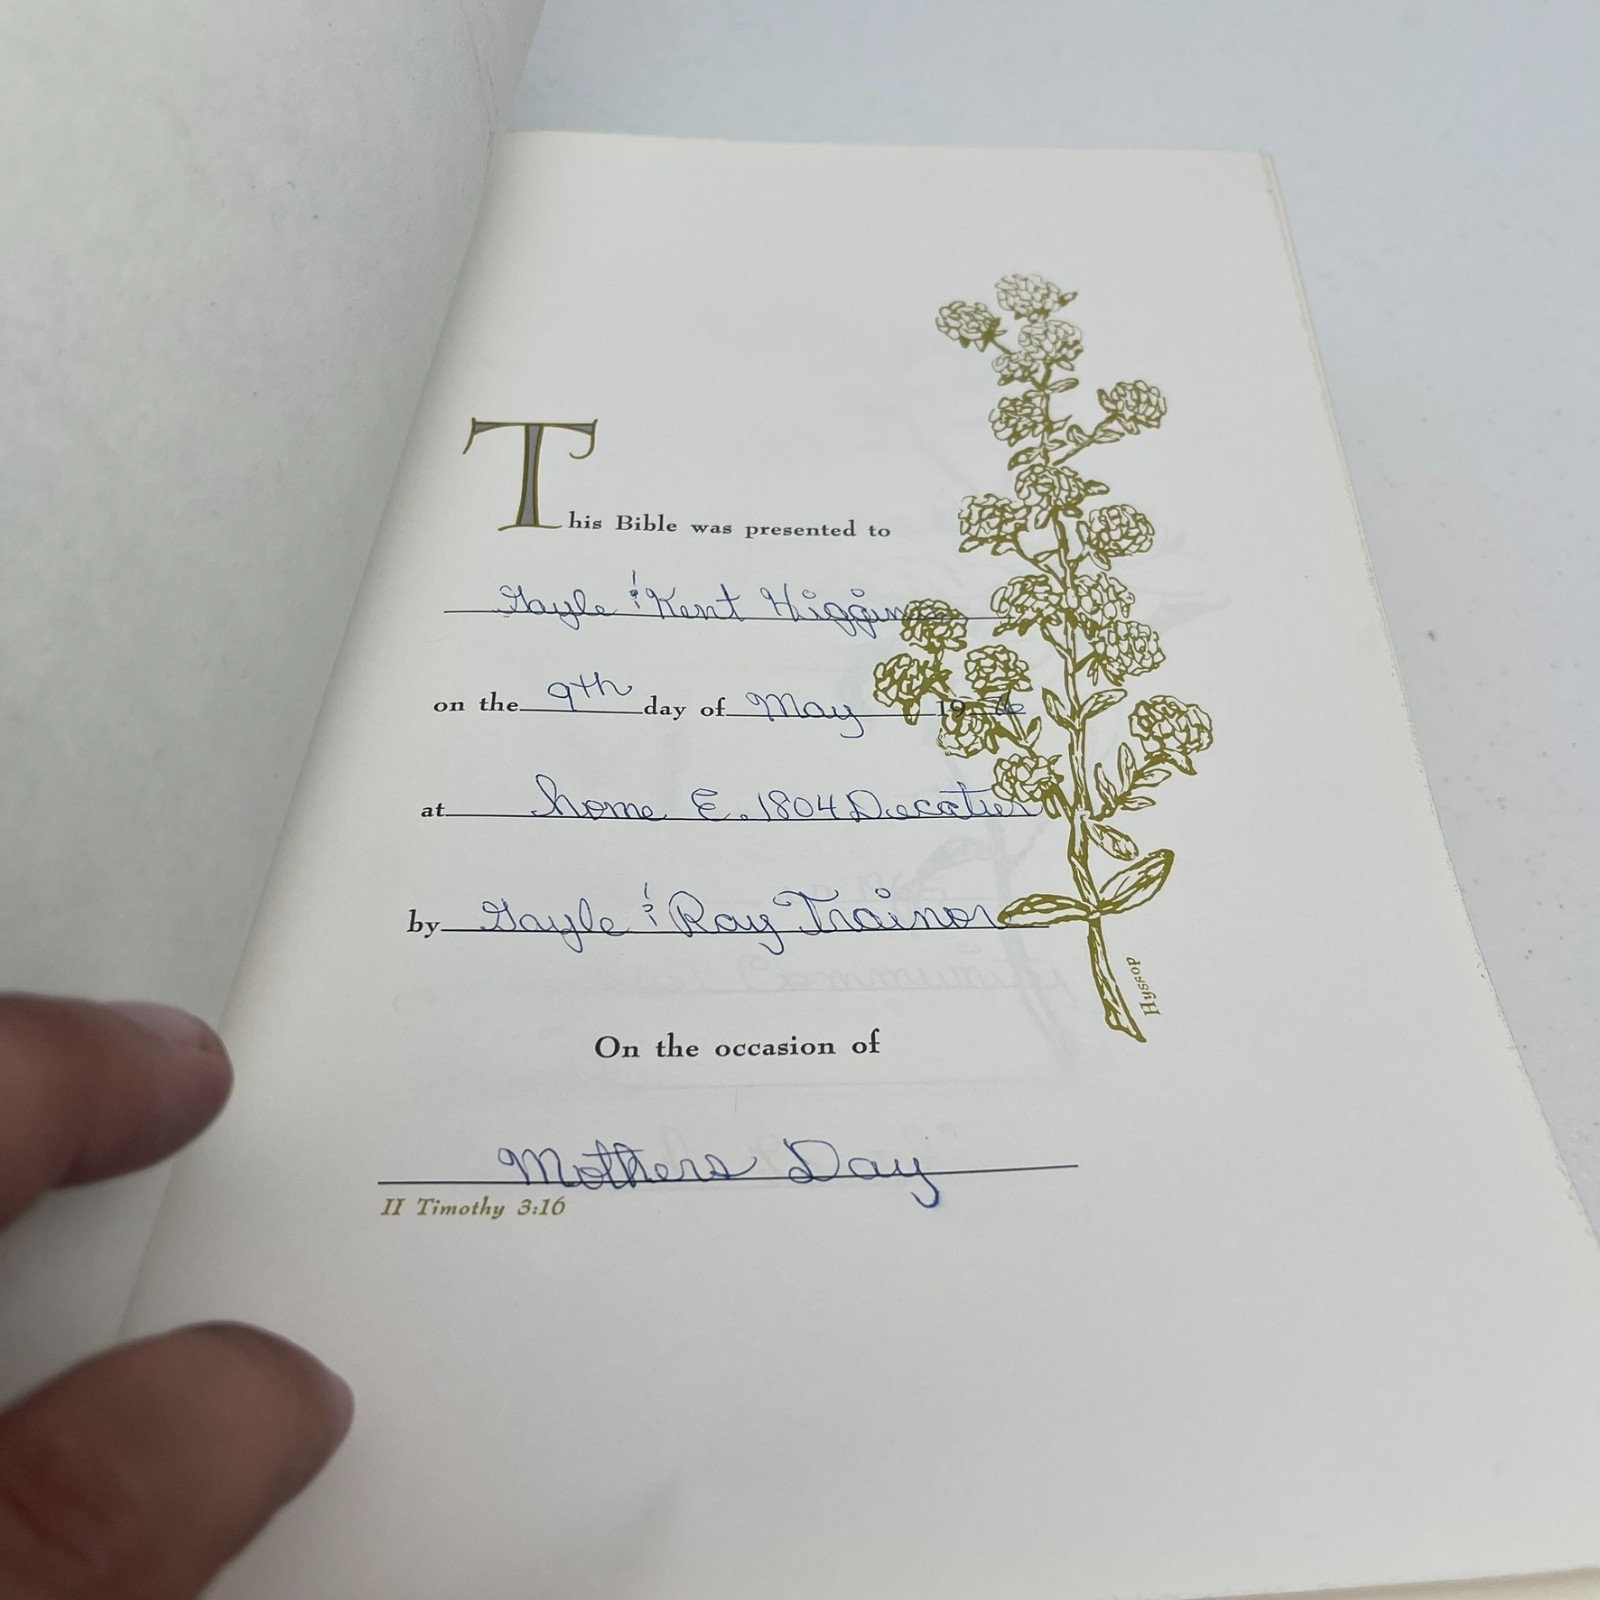 This Bible was presented to
Gayle & Kent Higgins
on the 9th day of May 1976
at home E. 1804 Decatier
by Gayle & Ray Trainor
On the occasion of
Mothers Day
II Timothy 3:16
Hyssop